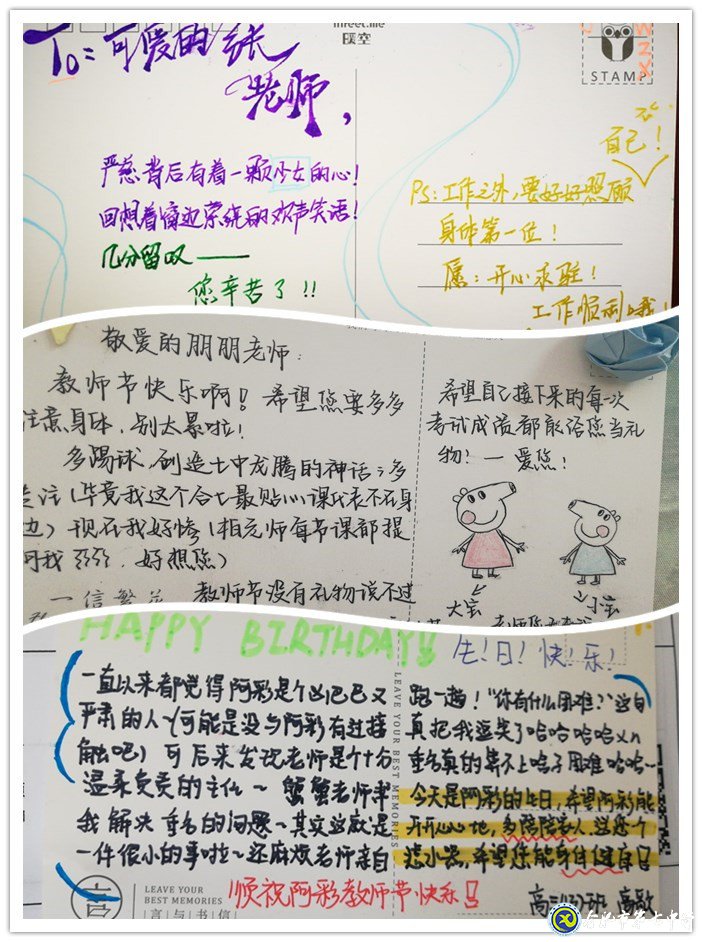 To：可爱的张
老师，
严慈背后有着一颗少女的心！
回想着窗边系统的欢声笑语！
几分留叹——
您辛苦了！！
璞空
STAMP
自己！
PS：工作之外，要好好照顾
身体第一位！
愿：开心求雅！
工作顺利哦！
敬爱的朋朋老师：
教师节快乐啊！希望您要多多
注意身体，别太累啦！
多踢球，创造七中龙腾的神话；多
关注（毕竟我这个合七最贴心课代表不在身
边）现在我好惨（相元师每节课都提
问我 嘤嘤，好想您）
一信繁花 教师节没有礼物说不过
希望自己接下来的每一次
考试成绩都能给您当礼
物！—爱您！
大宝
小宝
HAPPY BIRTHDAY!!
生！日！快！乐！
一直以来都觉得阿彩是个凶巴巴又
严肃的人~（可能是没与阿彩有过接
触吧）可后来发现老师是个十分
温柔负责的主任~ 蟹蟹老师帮
我解决重名的问题~其实这就是
一件很小的事啦~还麻烦老师亲自
跑一趟！“你有什么困难？”这句
真把我逗笑了哈哈哈哈xn
重名真的算不上啥子困难哈哈~
今天是阿彩的生日，希望阿彩能
开开心心地，多陪陪家人，
希望您能身体健康！
LEAVE YOUR BEST MEMORIES
LEAVE YOUR
BEST MEMORIES
言与书信
顺祝阿彩教师节快乐！